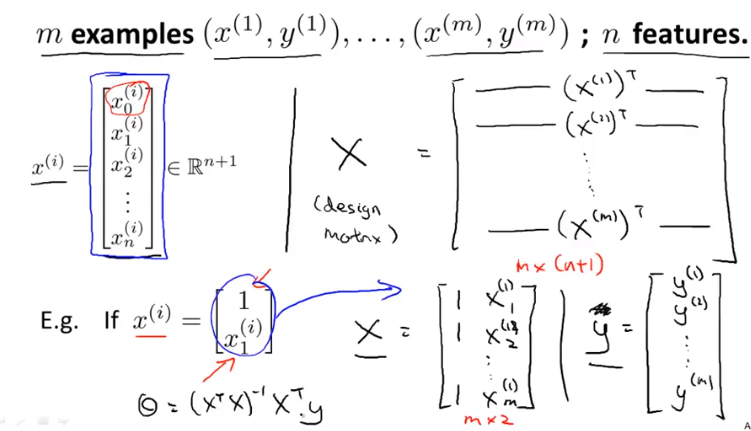 m examples (x^(1), y^(1)), . . . , (x^(m), y^(m)) ; n features.
x^(i) = [x_0^(i) x_1^(i) x_2^(i) ⋮ x_n^(i)] ∈ ℝ^(n+1)
X (design matrix) = [— (x^(1))^T — — (x^(2))^T — ⋮ — (x^(m))^T —]
m x (n+1)
E.g. If x^(i) = [1 x_1^(i)]
X = [1 x_1^(1) 1 x_2 ⋮ 1 x_m^(1)]
m x 2
y = [y^(1) y^(2) ⋮ y^(m)]
Θ = (X^T X)^-1 X^T y